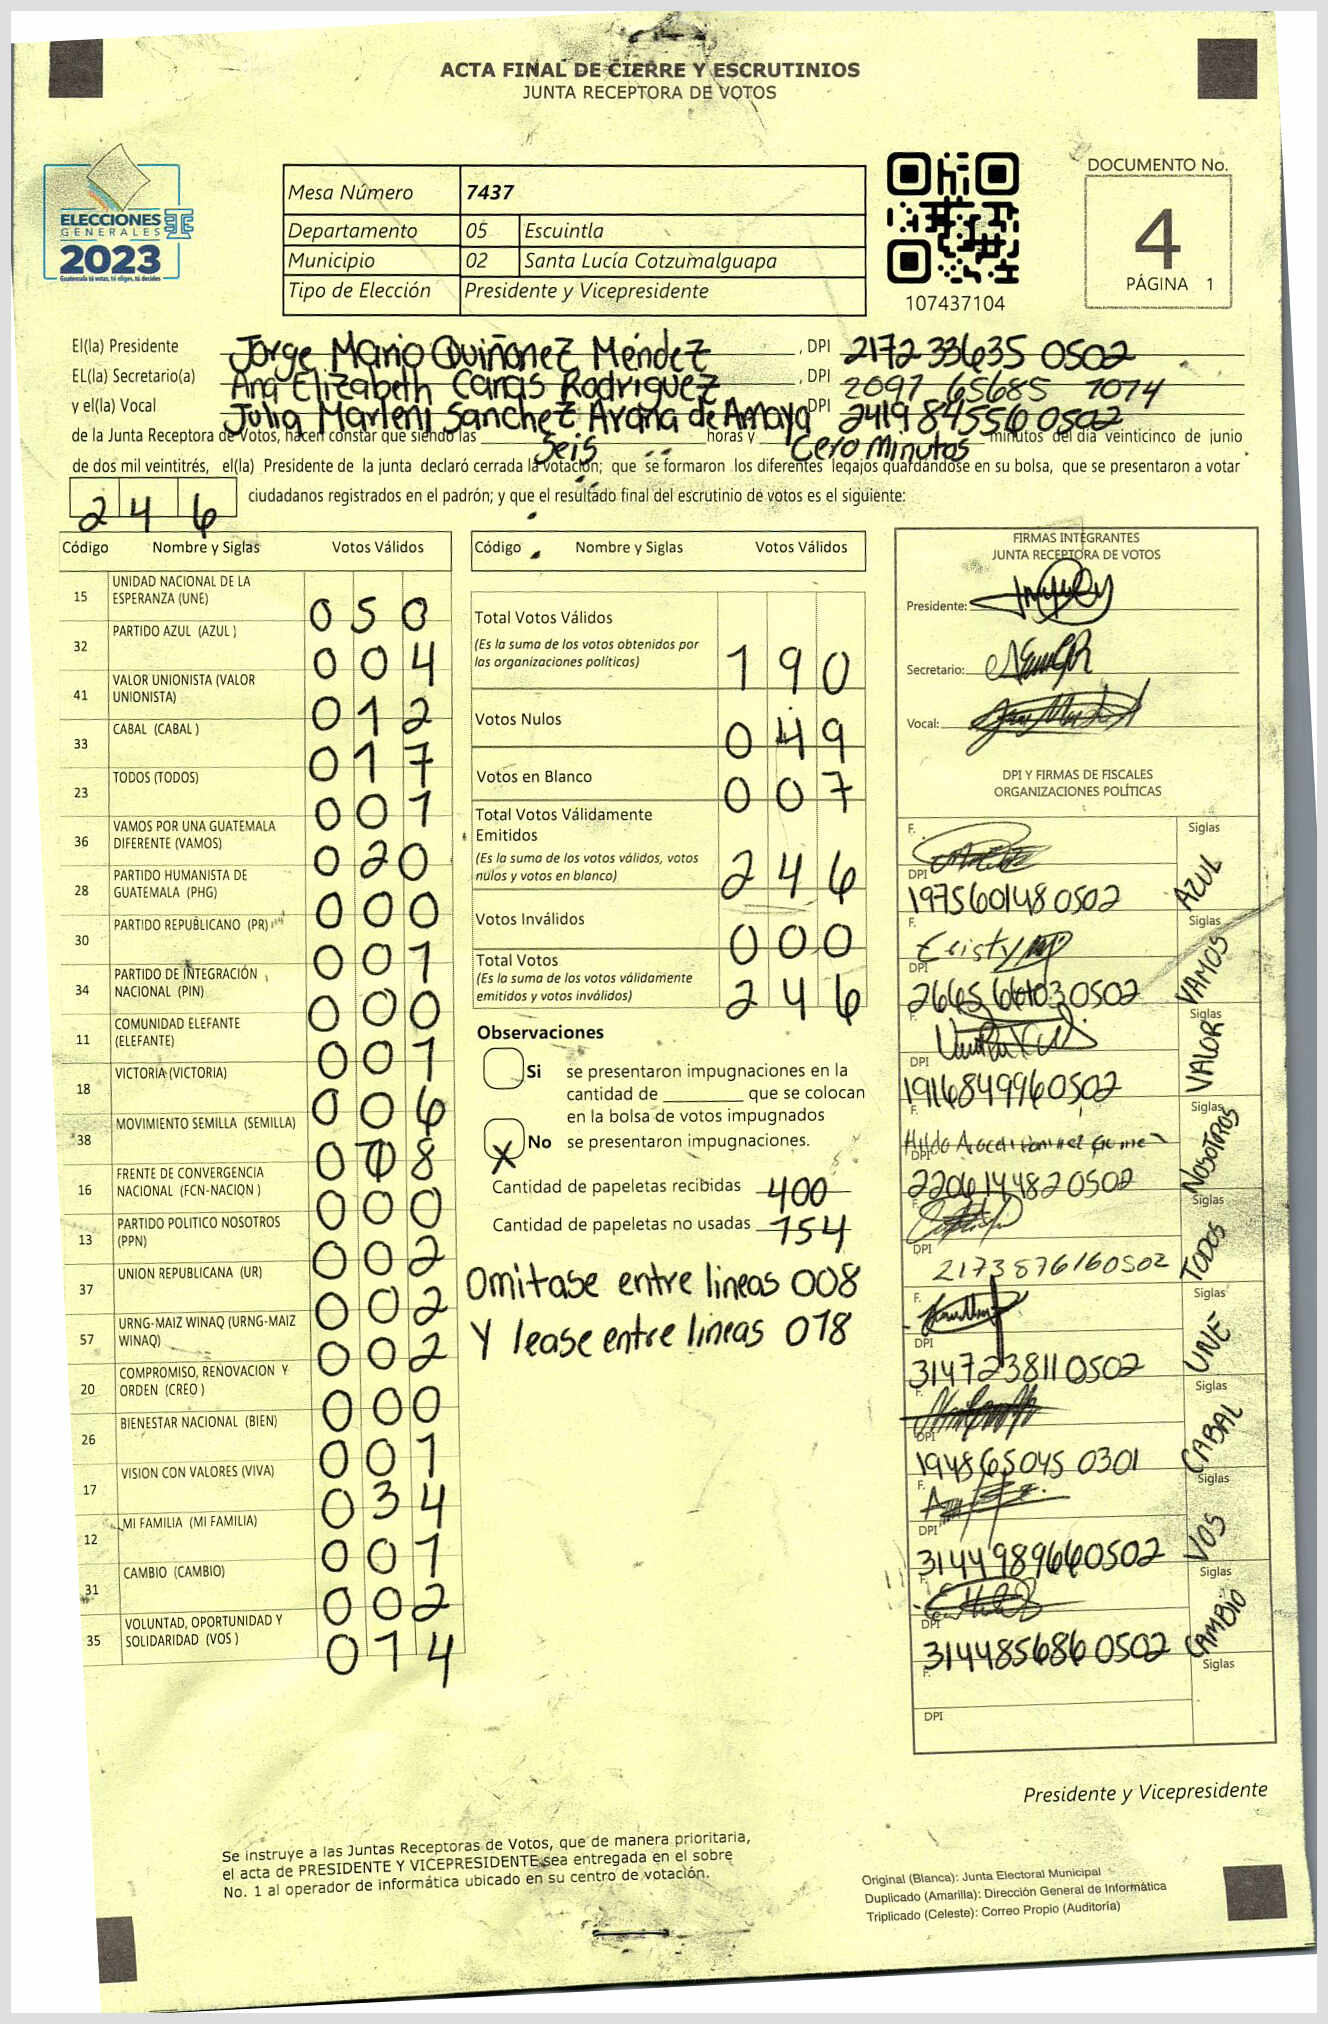 ACTA FINAL DE CIERRE Y ESCRUTINIOS
JUNTA RECEPTORA DE VOTOS
ELECCIONES
GENERALES
2023
Guatemala tú votas, tú eliges, tú decides
Mesa Número 7437
Departamento 05 Escuintla
Municipio 02 Santa Lucía Cotzumalguapa
Tipo de Elección Presidente y Vicepresidente
107437104
DOCUMENTO No.
4
PÁGINA 1
El(la) Presidente Jorge Mario Quiñonez Méndez, DPI 2172 33635 0502
EL(la) Secretario(a) Ana Elizabeth Canas Rodriguez, DPI 2097 65685 1014
y el(la) Vocal Julia Marleni Sanchez Arana de Amaya DPI 2419 84556 0502
de la Junta Receptora de Votos, hacen constar que siendo las Seis horas y Cero Minutos minutos del día veinticinco de junio
de dos mil veintitrés, el(la) Presidente de la junta declaró cerrada la votación; que se formaron los diferentes legajos guardándose en su bolsa, que se presentaron a votar
246 ciudadanos registrados en el padrón; y que el resultado final del escrutinio de votos es el siguiente:
Código Nombre y Siglas Votos Válidos
15 UNIDAD NACIONAL DE LA ESPERANZA (UNE) 050
32 PARTIDO AZUL (AZUL ) 004
41 VALOR UNIONISTA (VALOR UNIONISTA) 012
33 CABAL (CABAL ) 017
23 TODOS (TODOS) 001
36 VAMOS POR UNA GUATEMALA DIFERENTE (VAMOS) 020
28 PARTIDO HUMANISTA DE GUATEMALA (PHG) 000
30 PARTIDO REPUBLICANO (PR) 001
34 PARTIDO DE INTEGRACIÓN NACIONAL (PIN) 000
11 COMUNIDAD ELEFANTE (ELEFANTE) 001
18 VICTORIA (VICTORIA) 006
38 MOVIMIENTO SEMILLA (SEMILLA) 018
16 FRENTE DE CONVERGENCIA NACIONAL (FCN-NACION ) 000
13 PARTIDO POLITICO NOSOTROS (PPN) 002
37 UNION REPUBLICANA (UR) 002
57 URNG-MAIZ WINAQ (URNG-MAIZ WINAQ) 002
20 COMPROMISO, RENOVACION Y ORDEN (CREO ) 000
26 BIENESTAR NACIONAL (BIEN) 001
17 VISION CON VALORES (VIVA) 034
12 MI FAMILIA (MI FAMILIA) 001
31 CAMBIO (CAMBIO) 002
35 VOLUNTAD, OPORTUNIDAD Y SOLIDARIDAD (VOS ) 014
Código Nombre y Siglas Votos Válidos
Total Votos Válidos
(Es la suma de los votos obtenidos por
las organizaciones políticas) 190
Votos Nulos 049
Votos en Blanco 007
Total Votos Válidamente
Emitidos
(Es la suma de los votos válidos, votos
nulos y votos en blanco) 246
Votos Inválidos 000
Total Votos
(Es la suma de los votos válidamente
emitidos y votos inválidos) 246
Observaciones
Si se presentaron impugnaciones en la
cantidad de ________ que se colocan
en la bolsa de votos impugnados
X No se presentaron impugnaciones.
Cantidad de papeletas recibidas 400
Cantidad de papeletas no usadas 154
Omitase entre lineas 008
Y lease entre lineas 018
FIRMAS INTEGRANTES
JUNTA RECEPTORA DE VOTOS
Presidente:
Secretario:
Vocal:
DPI Y FIRMAS DE FISCALES
ORGANIZACIONES POLÍTICAS
F. Siglas AZUL
DPI 1975601480502
F. Siglas VAMOS
DPI 2665661030502
F. Siglas VALOR
DPI 1916849960502
F. Siglas NOSOTROS
DPI 2206144820502
Siglas TODOS
DPI 2173876160502
F. Siglas UNE
DPI 3147238110502
Siglas CABAL
DPI 1948650450301
F. Siglas VOS
DPI 3144989660502
F. Siglas CAMBIO
DPI 3144856860502
F. Siglas
DPI
Presidente y Vicepresidente
Se instruye a las Juntas Receptoras de Votos, que de manera prioritaria,
el acta de PRESIDENTE Y VICEPRESIDENTE sea entregada en el sobre
No. 1 al operador de informática ubicado en su centro de votación.
Original (Blanca): Junta Electoral Municipal
Duplicado (Amarilla): Dirección General de Informática
Triplicado (Celeste): Correo Propio (Auditoría)